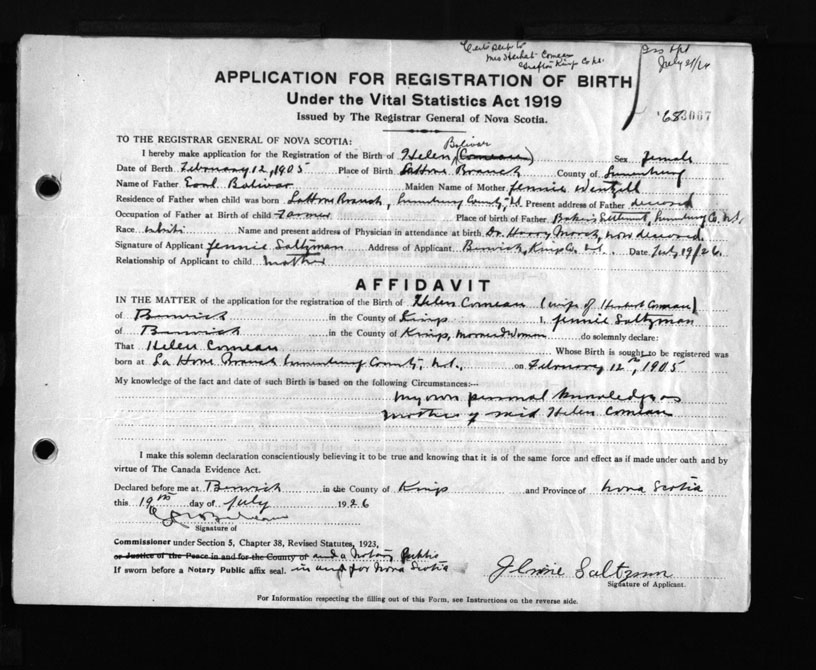 Mrs Herbet Comeau
Grafton Kings Co NS.
July 21/26
APPLICATION FOR REGISTRATION OF BIRTH
Under the Vital Statistics Act 1919
Issued by The Registrar General of Nova Scotia.
TO THE REGISTRAR GENERAL OF NOVA SCOTIA:
Bolivar
I hereby make application for the Registration of the Birth of Helen (Comeau) Sex female
Date of Birth February 12, 1905 Place of Birth LaHave Branch County of Lunenburg
Name of Father Bolivar Maiden Name of Mother Jennie Wentzell
Residence of Father when child was born LaHave Branch, Lunenburg County, N.S. Present address of Father deceased
Occupation of Father at Birth of child Farmer Place of birth of Father Bakers Settlement, Lunenburg Co. N.S.
Race white Name and present address of Physician in attendance at birth Dr. Harry March, now deceased
Signature of Applicant Jennie Saltzman Address of Applicant Berwick, Kings Co. N.S. Date July 19/26.
Relationship of Applicant to child mother
AFFIDAVIT
IN THE MATTER of the application for the registration of the Birth of Helen Comeau (wife of Herbert Comeau)
of Berwick in the County of Kings I, Jennie Saltzman
of Berwick in the County of Kings, Married Woman do solemnly declare:
That Helen Comeau Whose Birth is sought to be registered was
born at La Have Branch Lunenburg County, N.S., on February 12th, 1905
My knowledge of the fact and date of such Birth is based on the following Circumstances:—
My own personal knowledge as
mother of said Helen Comeau
I make this solemn declaration conscientiously believing it to be true and knowing that it is of the same force and effect as if made under oath and by
virtue of The Canada Evidence Act.
Declared before me at Berwick in the County of Kings and Province of Nova Scotia
this 19th day of July 1926
Signature of
Commissioner under Section 5, Chapter 38, Revised Statutes, 1923,
or Justice of the Peace in and for the County of and a Notary Public
If sworn before a Notary Public affix seal. in and for Nova Scotia
Jennie Saltzman
Signature of Applicant.
For Information respecting the filling out of this Form, see Instructions on the reverse side.